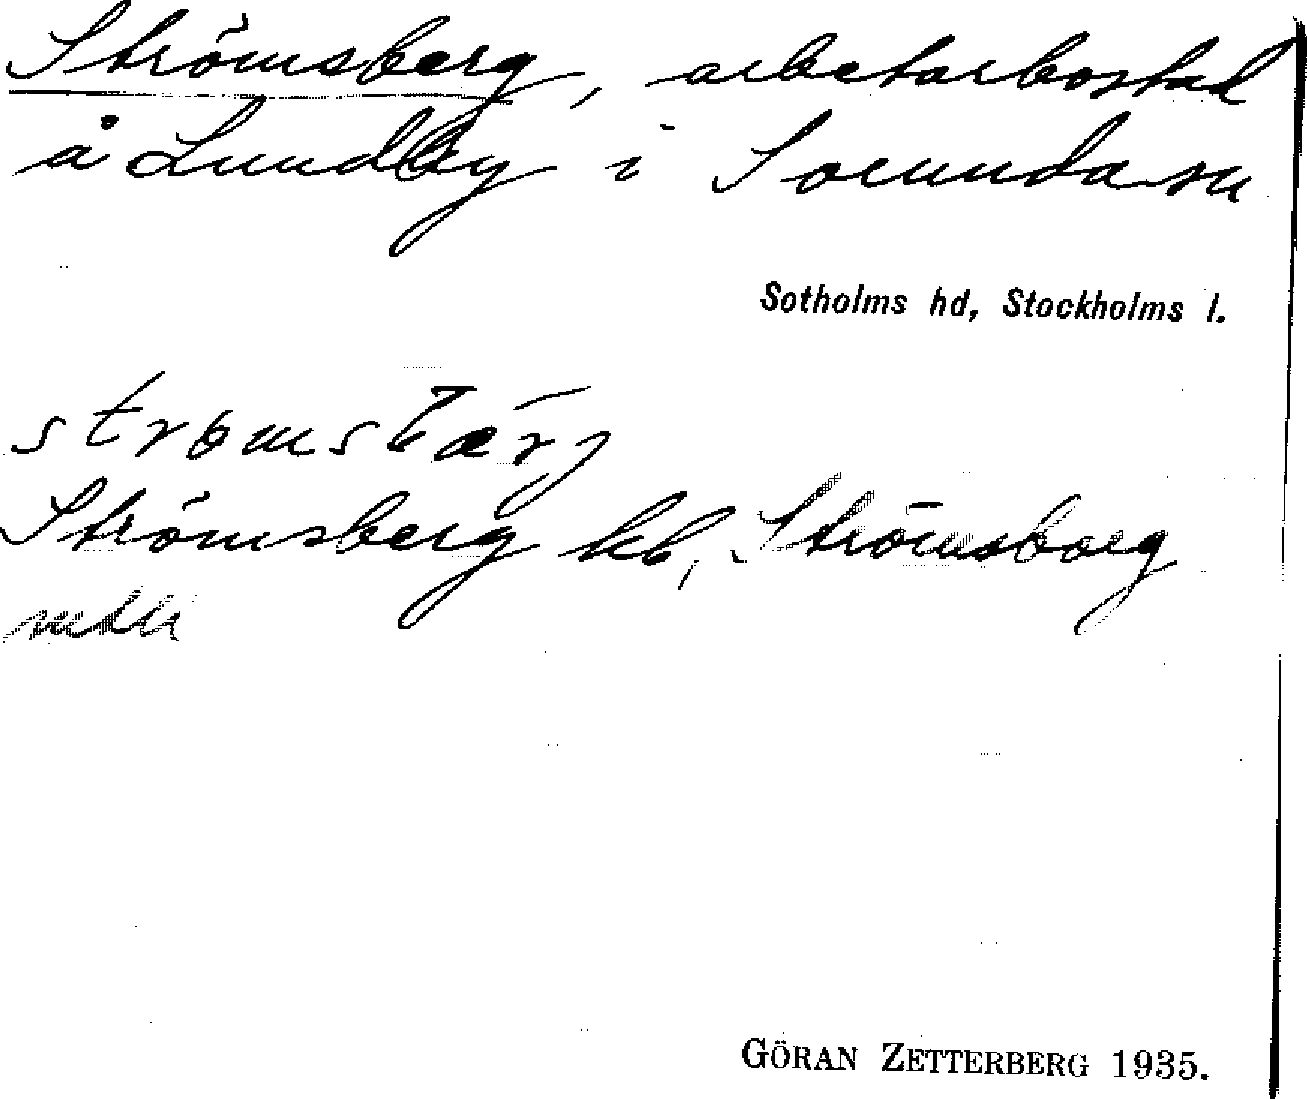 Strömsberg, arbetarbostad
å Lundby i Sorunda sn
Sotholms hd, Stockholms l.
Strömsberg kb, Strömsborg
mtlk
GÖRAN ZETTERBERG 1935.